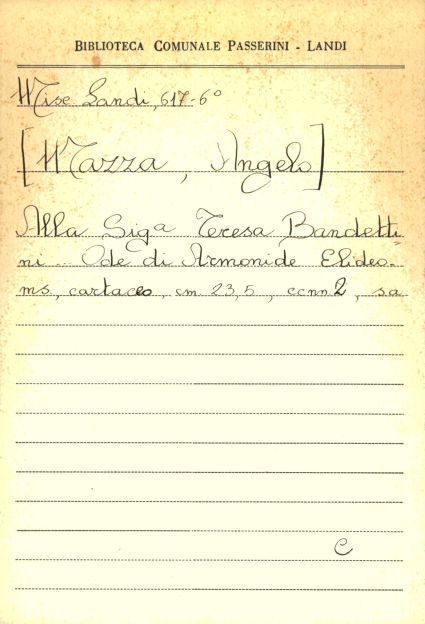 BIBLIOTECA COMUNALE PASSERINI - LANDI
Misc Landi, 617-6°
[Mazza, Angelo]
Alla Sigª Teresa Bandetti=
ni... Ode di Armonide Elideo.
ms, cartaceo, cm. 23,5, ccnn.2, s.a
C